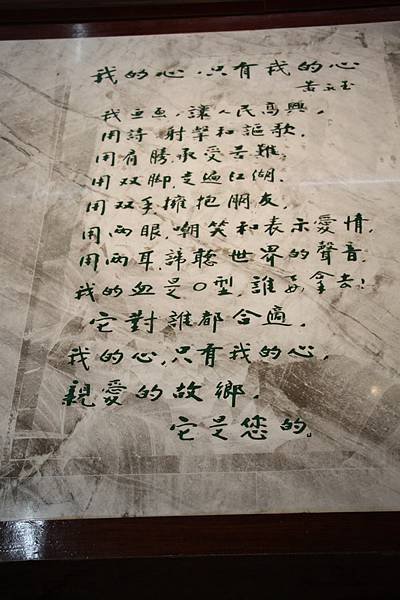 我的心，只有我的心
黄永玉
我画画，讓人民高興，
用詩射擊和謳歌，
用肩膀承受苦難，
用双脚走遍江湖，
用双手擁抱朋友，
用两眼嘲笑和表示愛情，
用两耳諦聽世界的聲音，
我的血是O型，誰要拿去！
它對誰都合適，
我的心，只有我的心，
親愛的故鄉，
它是您的。